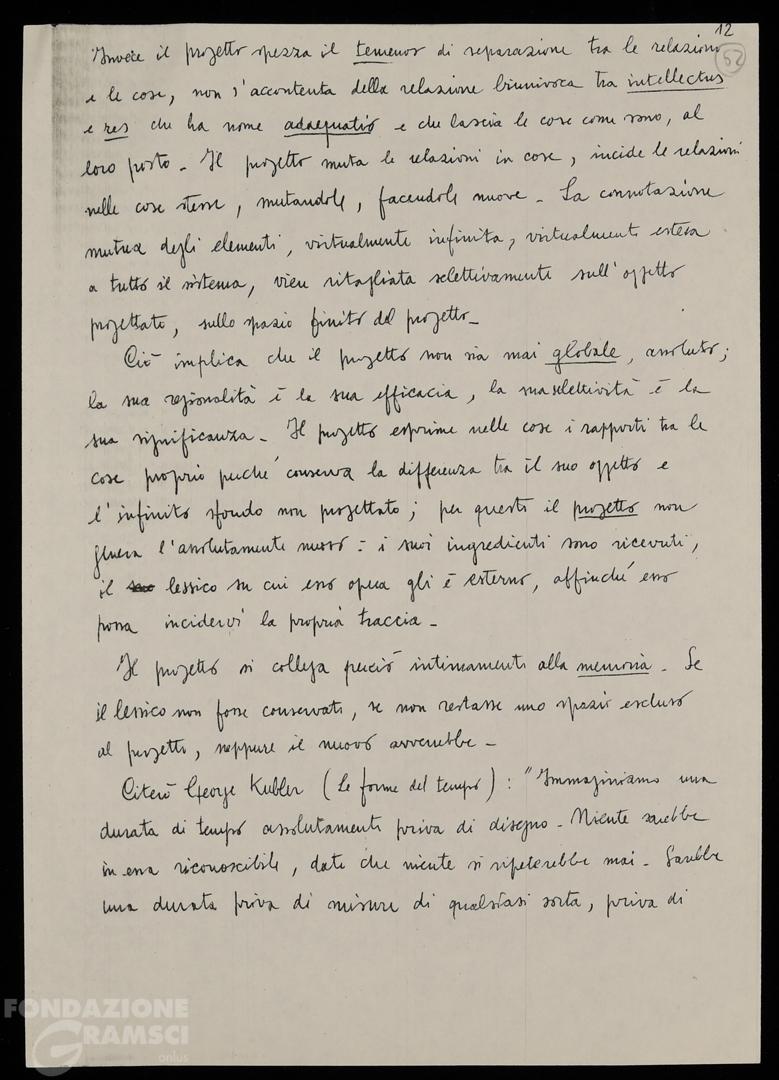 12
52
Invece il progetto spezza il temenos di separazione tra le relazioni
e le cose, non s'accontenta della relazione biunivoca tra intellectus
e res che ha nome adaequatio e che lascia le cose come sono, al
loro posto - Il progetto muta le relazioni in cose, incide le relazioni
nelle cose stesse, mutandole, facendole nuove - La connotazione
mutua degli elementi, virtualmente infinita, virtualmente estesa
a tutto il sistema, vien ritagliata selettivamente sull'oggetto
progettato, sullo spazio finito del progetto -
Ciò implica che il progetto non sia mai globale, assoluto;
la sua regionalità è la sua efficacia, la sua selettività è la
sua significanza - Il progetto esprime nelle cose i rapporti tra le
cose proprio perché conserva la differenza tra il suo oggetto e
l'infinito sfondo non progettato; per questo il progetto non
genera l'assolutamente nuovo: i suoi ingredienti sono ricevuti,
il suo lessico su cui esso opera gli è esterno, affinché esso
possa incidervi la propria traccia -
Il progetto si collega perciò intimamente alla memoria. Se
il lessico non fosse conservato, se non restasse uno spazio escluso
al progetto, neppure il nuovo avverrebbe -
Citerò George Kubler (Le forme del tempo): "Immaginiamo una
durata di tempo assolutamente priva di disegno - Niente sarebbe
in essa riconoscibile, dato che niente si ripeterebbe mai - Sarebbe
una durata priva di misure di qualsiasi sorta, priva di
FONDAZIONE
GRAMSCI
onlus